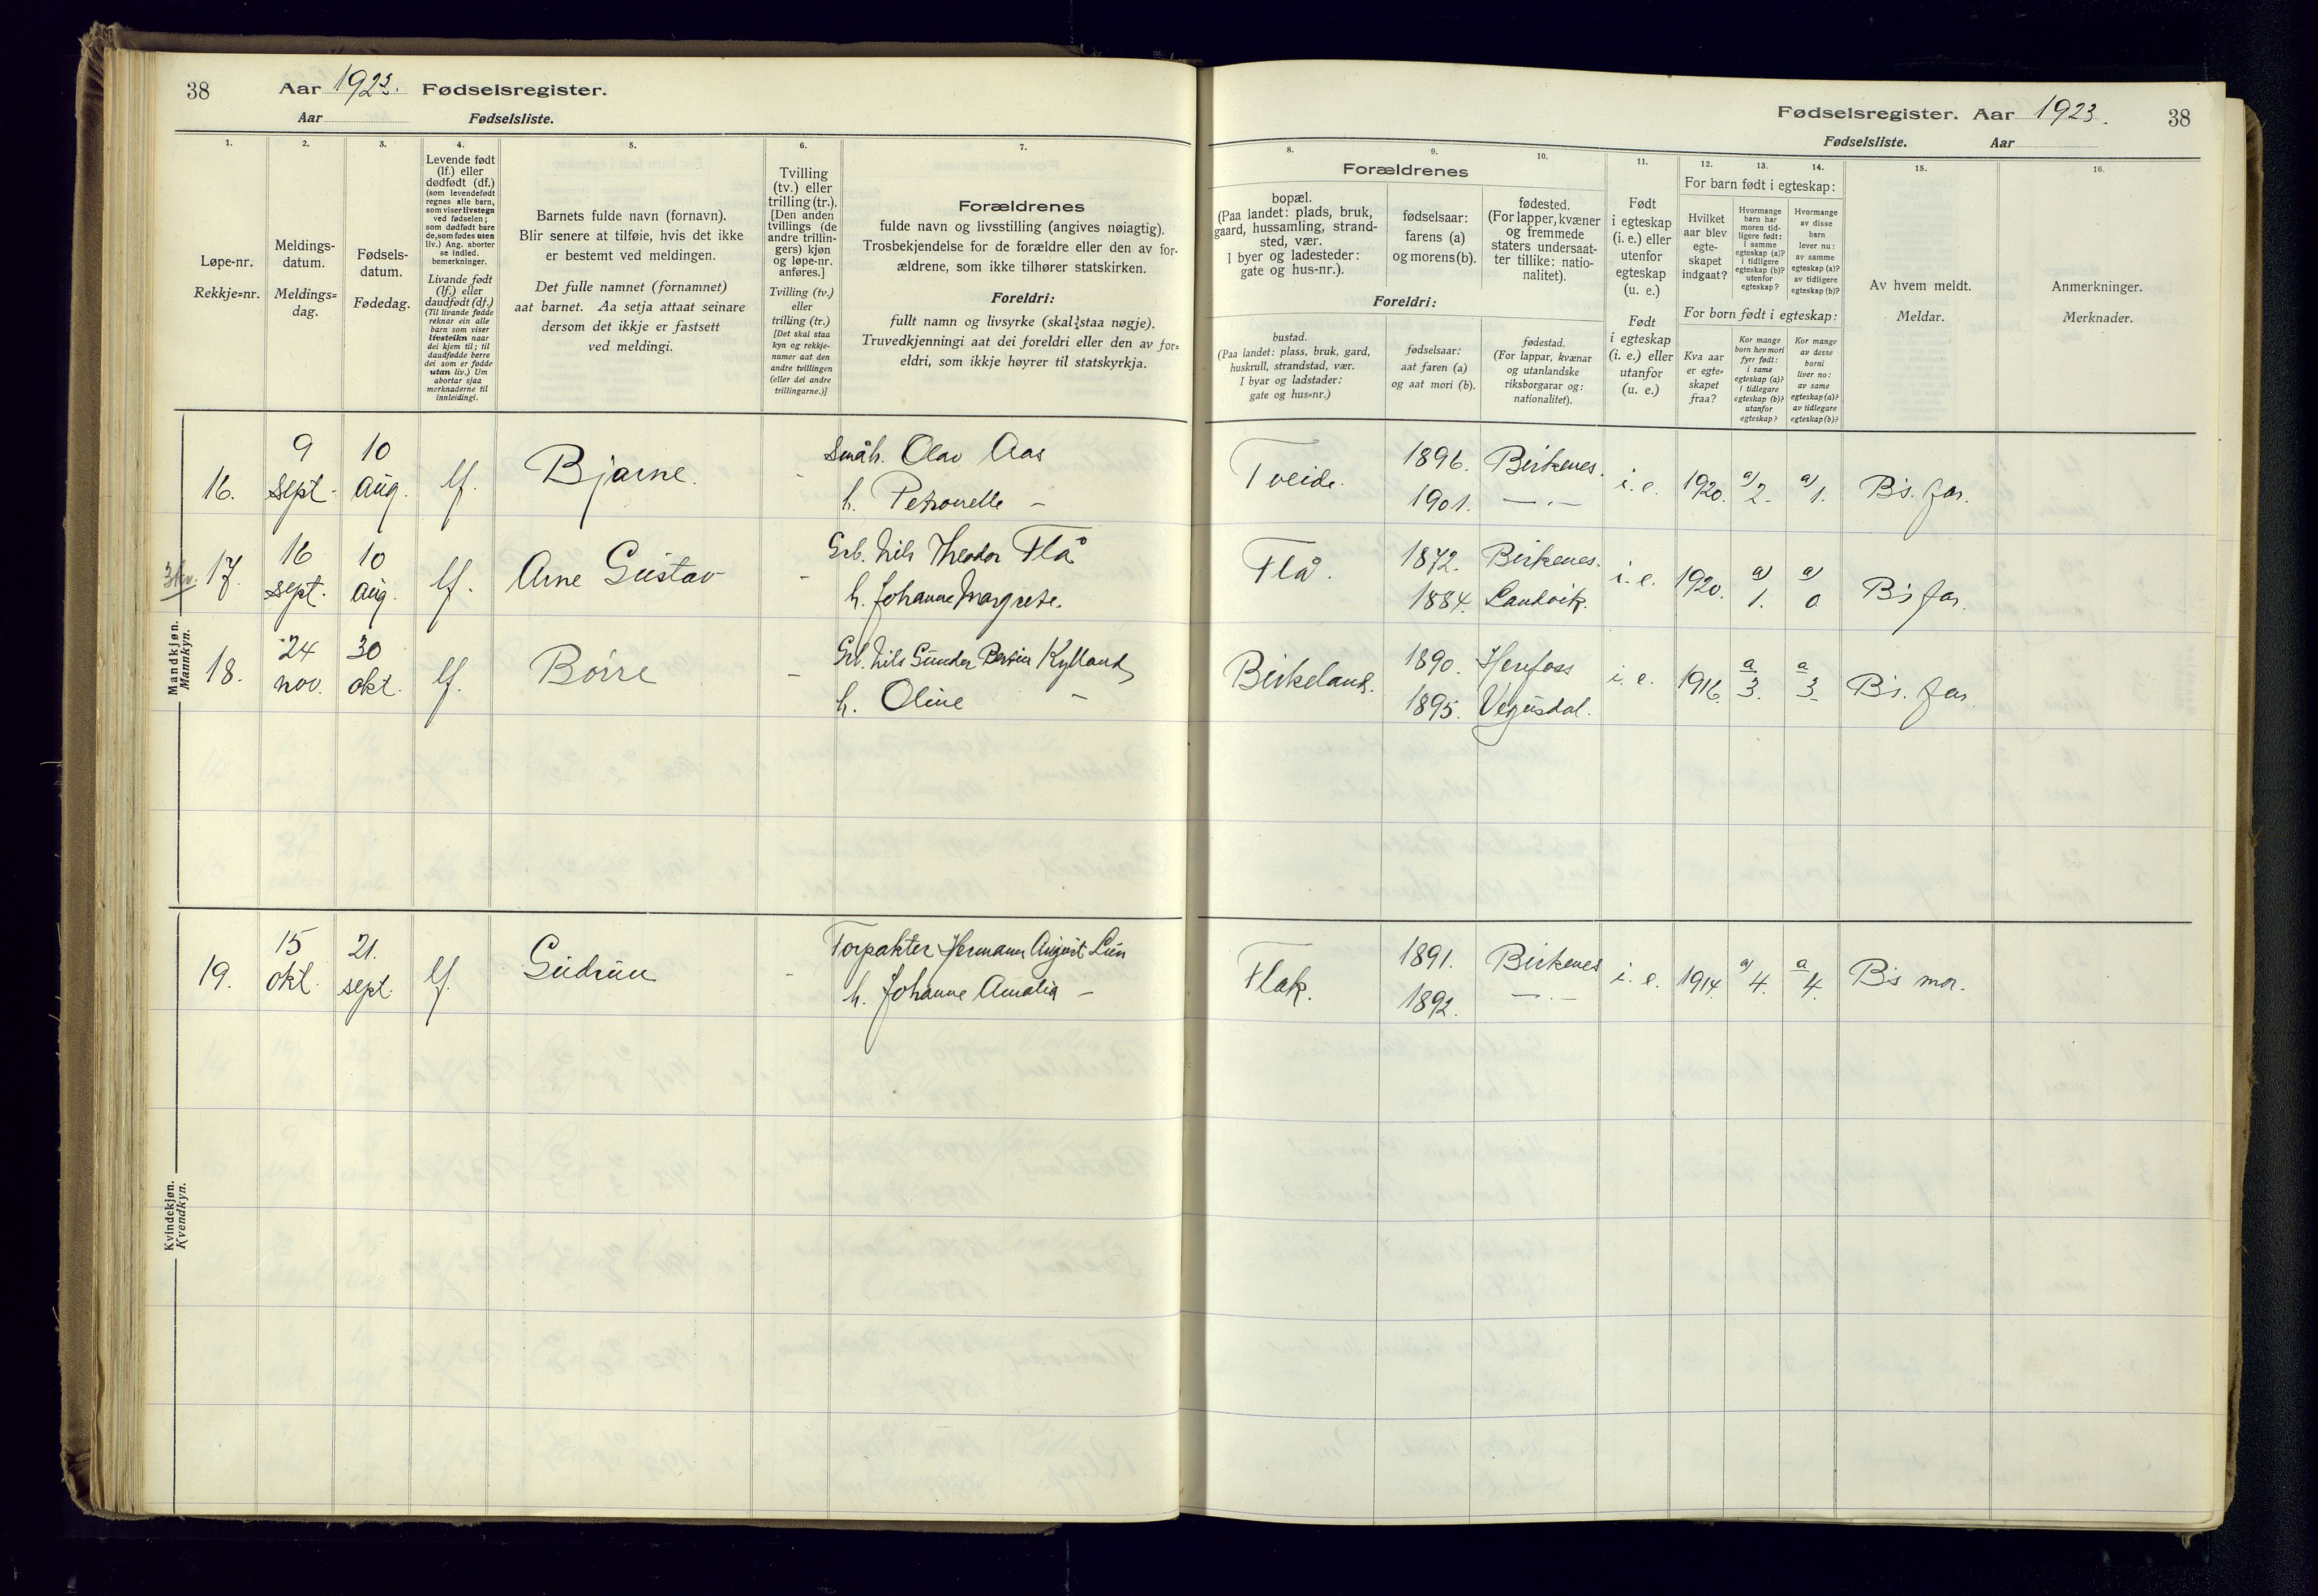 38
Aar 1923. Fødselsregister.
Aar Fødselsliste.
1.
2.
3.
4.
5.
6.
7.
Løpe-nr.
Rekkje=nr.
Meldings-
datum.
Meldings=
dag.
Fødsels-
datum.
Fødedag.
Levende født
(lf.) eller
dødfødt (df.)
(som levendefødt
regnes alle barn,
som viser livstegn
ved fødselen;
som dødfødt bare
de, som fødes uten
liv.) Ang. aborter
se indled.
bemerkninger.
Livande født
(lf.) eller
daudfødt (df.)
(Til livande fødde
reknar ein alle
barn som viser
livsteikn naar
dei kjem til; til
daudfødde berre
dei som er fødde
utan liv.) Um
abortar sjaa
merknaderne til
innleidingi.
Barnets fulde navn (fornavn).
Blir senere at tilføie, hvis det ikke
er bestemt ved meldingen.
Det fulle namnet (fornamnet)
aat barnet. Aa setja attaat seinare
dersom det ikkje er fastsett
ved meldingi.
Tvilling
(tv.) eller
trilling (tr.).
[Den anden
tvillings (de
andre trillin-
gers) kjøn
og løpe-nr.
anføres.]
Tvilling (tv.)
eller
trilling (tr.)
[Det skal staa
kyn og rekkje-
numer aat den
andre tvillingen
(eller dei andre
trillingarne.)]
Forældrenes
fulde navn og livsstilling (angives nøiagtig).
Trosbekjendelse for de forældre eller den av for-
ældrene, som ikke tilhører statskirken.
Foreldri:
fullt namn og livsyrke (skal staa nøgje).
Truvedkjenningi aat dei foreldri eller den av for=
eldri, som ikkje høyrer til statskyrkja.
Mandkjøn.
Mannkyn.
16.
9
sept.
10
aug.
lf.
Bjarne.
-
Småb. Olav Aas
h. Petronelle -
17.
16
sept.
10
aug.
lf.
Arne Gustav
-
Grb. Nils Theodor Flå
h. Johanne Margrete.
18.
24
nov.
30
okt.
lf.
Børre
-
Grb. Nils Gunder Kylland
h. Oline -
Kvindekjøn.
Kvendkyn.
19.
15
okt.
21.
sept.
lf.
Gudrun
-
Torpakter Hermann August Lun
h. Johanne Amalia -
Fødselsregister. Aar 1923. 38
Fødselsliste. Aar
8.
9.
10.
11.
12.
13.
14.
15.
16.
Forældrenes
bopæl.
(Paa landet: plads, bruk,
gaard, hussamling, strand-
sted, vær.
I byer og ladesteder:
gate og hus-nr.).
fødselsaar:
farens (a)
og morens (b).
fødested.
(For lapper, kvæner
og fremmede
staters undersaat-
ter tillike: natio-
nalitet).
Foreldri:
bustad.
(Paa landet: plass, bruk, gard,
huskrull, strandstad, vær.
I byar og ladstader:
gate og hus=nr.)
fødselsaar:
aat faren (a)
og aat mori (b).
fødestad.
(For lappar, kvænar
og utanlandske
riksborgarar og:
nationalitet).
Født
i egteskap
(i. e.) eller
utenfor
egteskap
(u. e.)
Født
i egteskap
(i. e.) eller
utanfor
(u. e.)
For barn født i egteskap:
Hvilket
aar blev
egte-
skapet
indgaat?
Hvormange
barn har
moren tid-
ligere født:
i samme
egteskap (a)?
i tidligere
egteskap (b)?
utenfor
egteskap?
Hvormange
av disse
barn
lever nu:
av samme
egteskap (a)?
av tidligere
egteskap (b)?
For born født i egteskap:
Kva aar
er egte=
skapet
fraa?
Kor mange
born hev mori
fyrr født:
i same
egteskap (a)?
i tidlegare
egteskap (b)?
utanfor
egteskap?
Kor mange
av desse
borni
liver no:
av same
egteskap (a)?
av tidlegare
egteskap (b)?
Av hvem meldt.
Meldar.
Anmerkninger.
Merknader.
Tveide.
1896.
1901.
Birkenes.
— " —
i. e.
1920.
a) 2.
a) 1.
B's. far.
Flå.
1872.
1884.
Birkenes.
Landvik.
i. e.
1920.
a) 1.
a) 0
B's far.
Birkeland.
1890.
1895.
Herefoss
Vegusdal.
i. e.
1916.
a 3.
a 3
B's. far.
Flak.
1891.
1892.
Birkenes
— " —
i. e.
1914.
a) 4.
a 4.
B's mor.